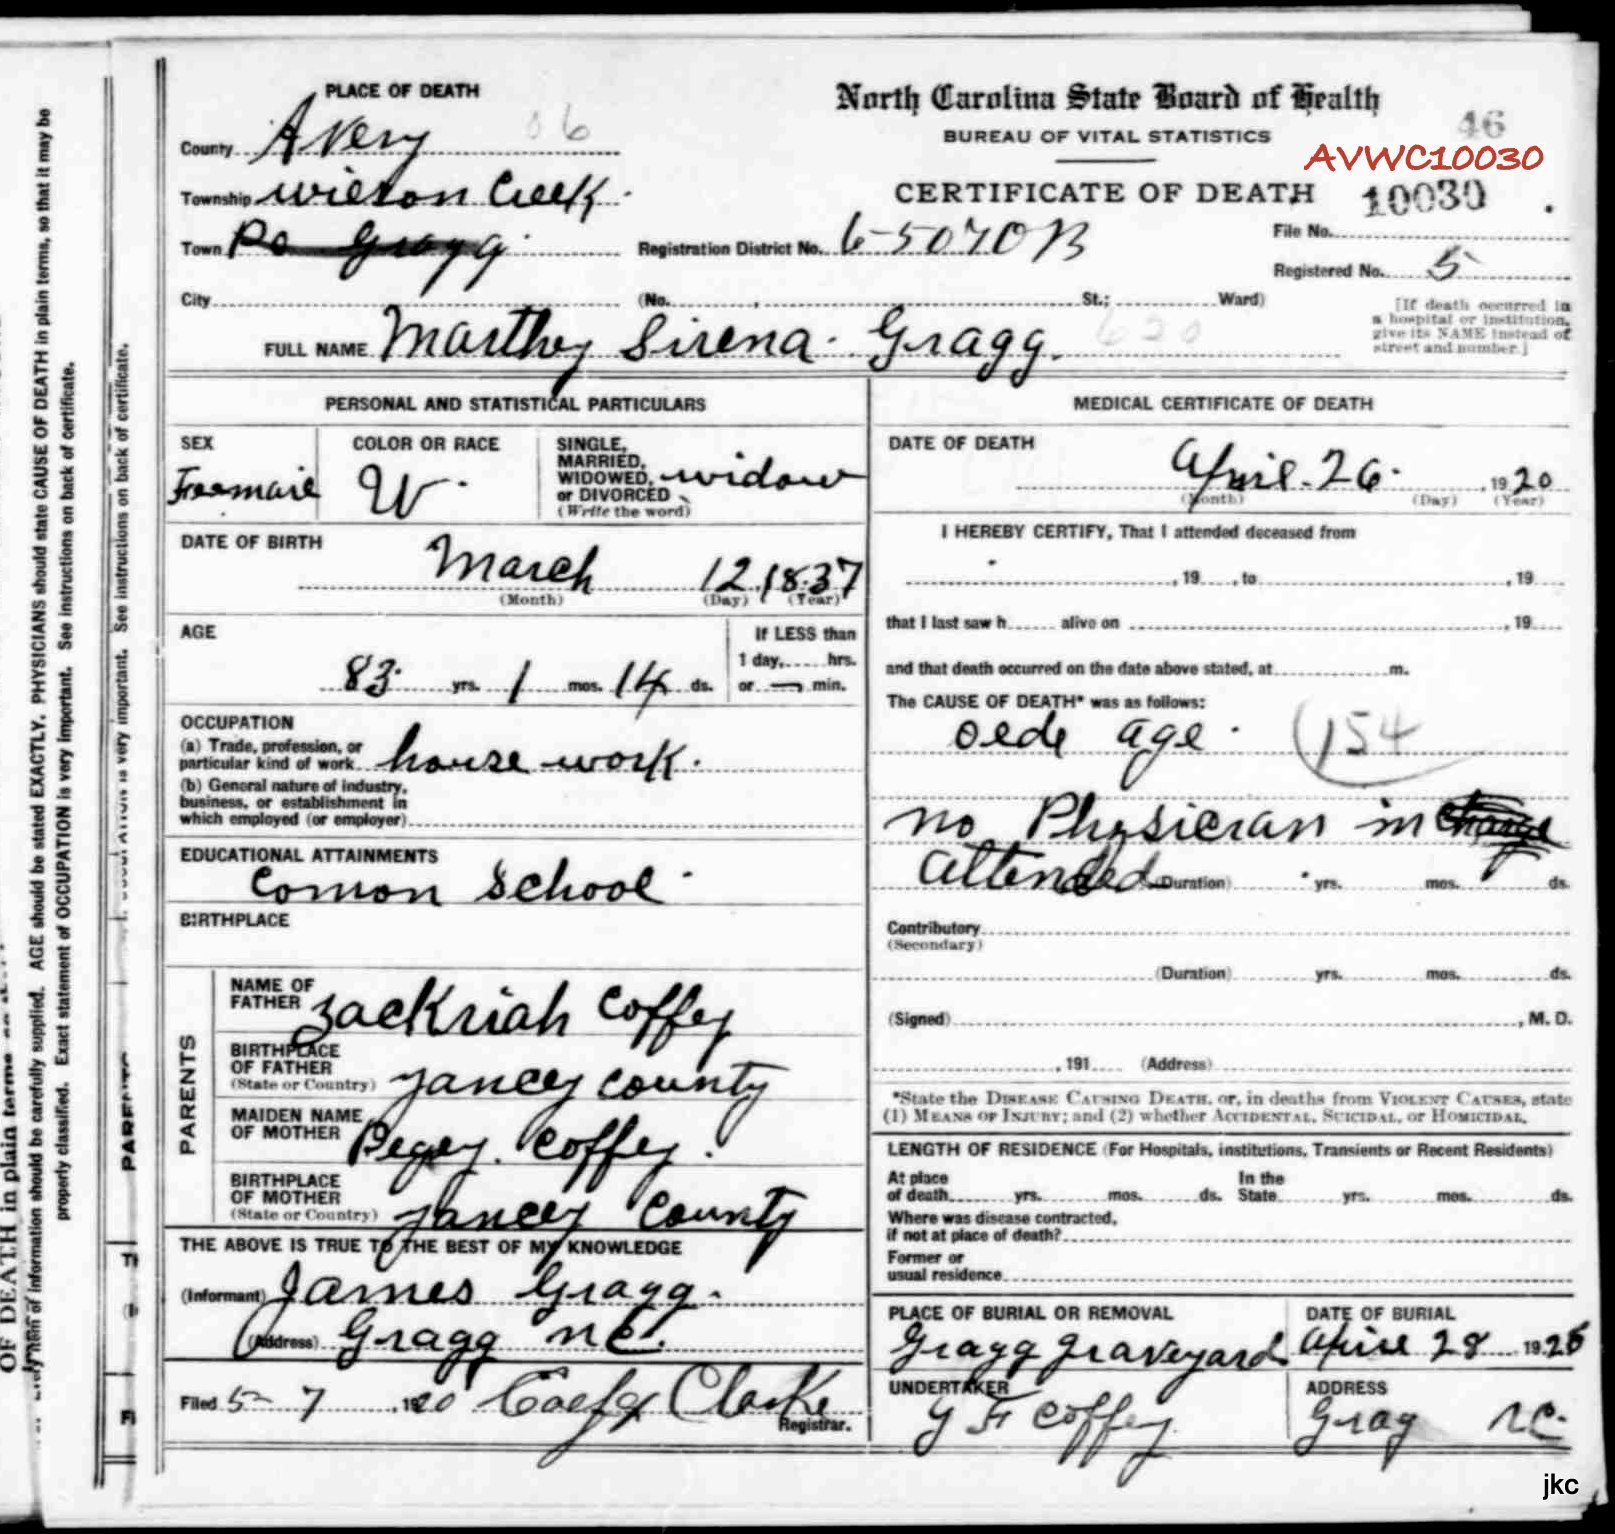 PLACE OF DEATH
County Avery 86
Township Wilson Creek
Town Po Gragg
City (No. , St.; Ward)
North Carolina State Board of Health
BUREAU OF VITAL STATISTICS
46
AVWC10030
CERTIFICATE OF DEATH 10030
Registration District No. 6-5070 B
File No.
Registered No. 5
[If death occurred in
a hospital or institution,
give its NAME instead of
street and number.]
FULL NAME Marthey Sirena Gragg. 620
PERSONAL AND STATISTICAL PARTICULARS
SEX
Freemaie
COLOR OR RACE
W
SINGLE,
MARRIED,
WIDOWED,
or DIVORCED
(Write the word)
widow
DATE OF BIRTH
March 12 1837
(Month) (Day) (Year)
AGE
83 yrs. 1 mos. 14 ds.
If LESS than
1 day, hrs.
or — min.
OCCUPATION
(a) Trade, profession, or
particular kind of work house work.
(b) General nature of industry,
business, or establishment in
which employed (or employer)
EDUCATIONAL ATTAINMENTS
Comon School
BIRTHPLACE
PARENTS
NAME OF
FATHER Zackriah Coffey
BIRTHPLACE
OF FATHER
(State or Country) yancey county
MAIDEN NAME
OF MOTHER Pegey. Coffey.
BIRTHPLACE
OF MOTHER
(State or Country) yancey County
THE ABOVE IS TRUE TO THE BEST OF MY KNOWLEDGE
(Informant) James Gragg.
(Address) Gragg NC.
Filed 5-7, 1920 Clarke
Registrar.
MEDICAL CERTIFICATE OF DEATH
DATE OF DEATH
April 26, 1920
(Month) (Day) (Year)
I HEREBY CERTIFY, That I attended deceased from
, 19 , to , 19
that I last saw h alive on , 19
and that death occurred on the date above stated, at m.
The CAUSE OF DEATH* was as follows:
olde age. (154
no Physician in
attended (Duration) yrs. mos. ds.
Contributory
(Secondary)
(Duration) yrs. mos. ds.
(Signed) , M. D.
, 191 (Address)
*State the DISEASE CAUSING DEATH, or, in deaths from VIOLENT CAUSES, state
(1) MEANS OF INJURY; and (2) whether ACCIDENTAL, SUICIDAL, or HOMICIDAL.
LENGTH OF RESIDENCE (For Hospitals, institutions, Transients or Recent Residents)
At place
of death yrs. mos. ds.
In the
State yrs. mos. ds.
Where was disease contracted,
if not at place of death?
Former or
usual residence
PLACE OF BURIAL OR REMOVAL
Gragg graveyard
DATE OF BURIAL
April 28 1920
UNDERTAKER
Coffey
ADDRESS
Grag NC.
OF DEATH in plain terms
item of information should be carefully supplied. AGE should be stated EXACTLY. PHYSICIANS should state CAUSE OF DEATH in plain terms, so that it may be
properly classified. Exact statement of OCCUPATION is very important. See instructions on back of certificate.
is very important. See instructions on back of certificate.
jkc